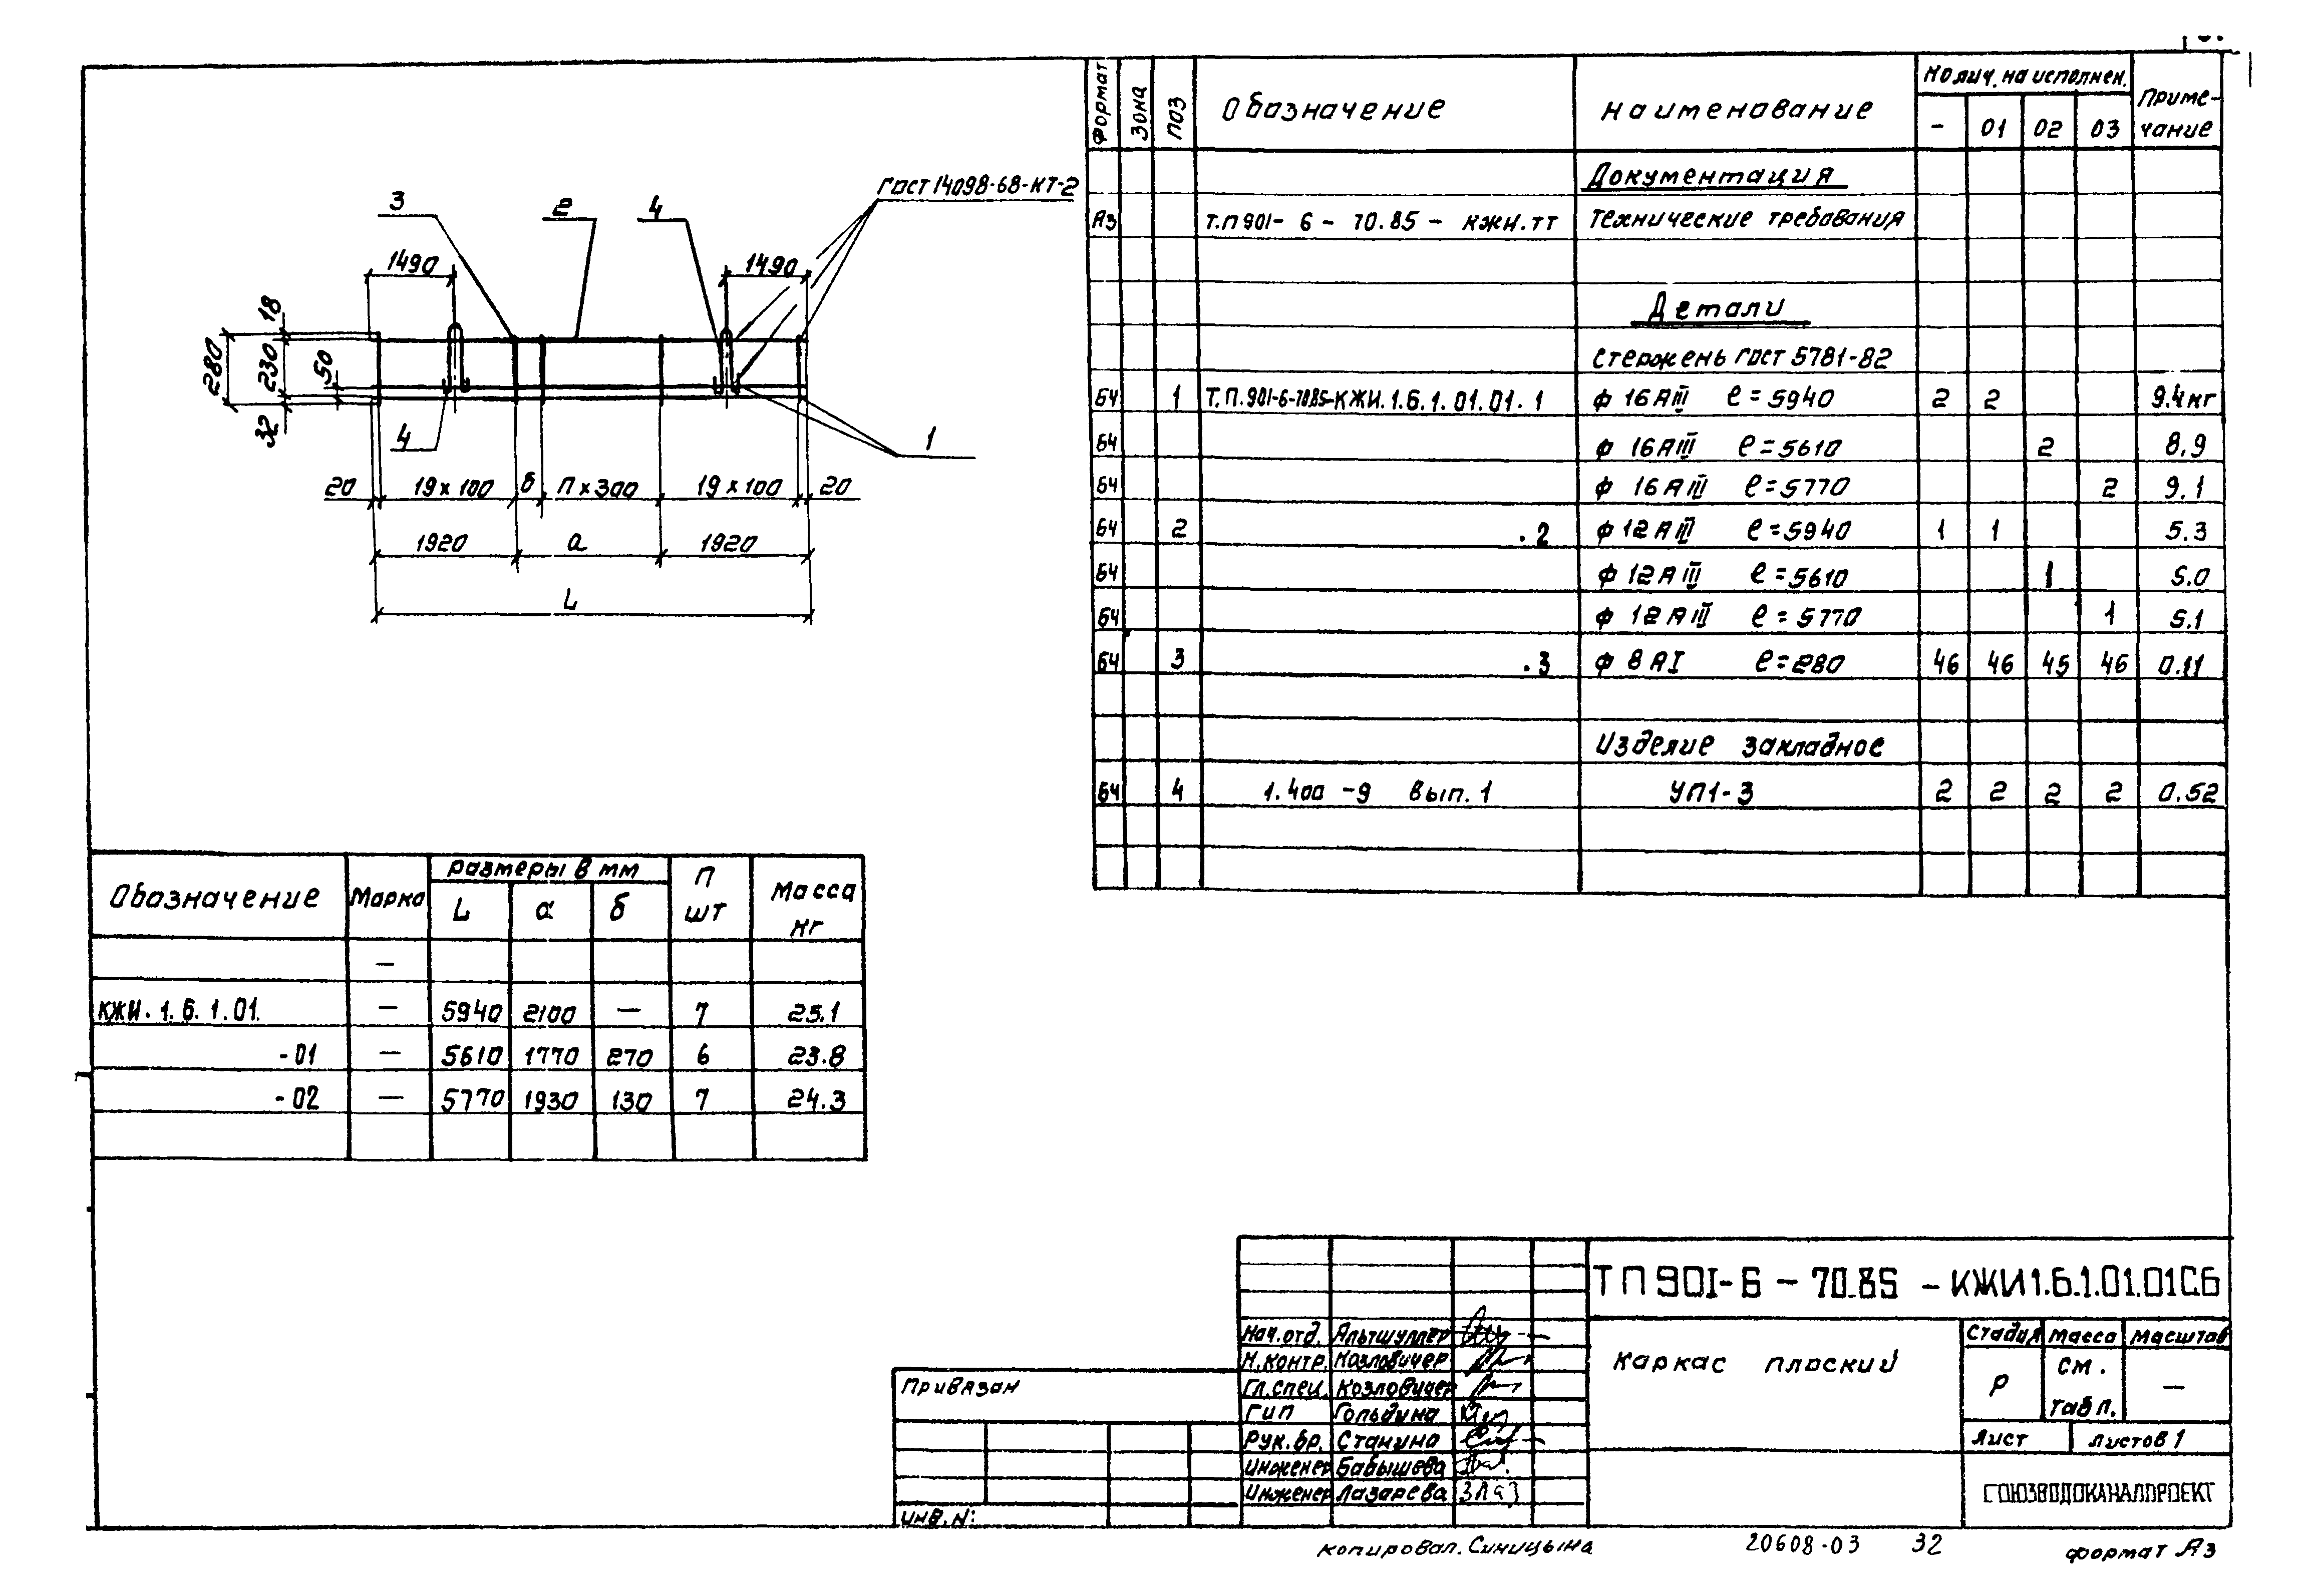 3
2
4
ГОСТ 14098-68-КТ-2
1490
1490
18
280
230
50
32
4
1
20
19×100
б
п×300
19×100
20
1920
а
1920
L
формат
Зона
Поз
Обозначение
Наименование
Колич. на исполнен.
Приме-
чание
-
01
02
03
Документация
А3 Т.П 901- 6 - 70.85 - КЖИ.ТТ Технические требования
Детали
Стержень ГОСТ 5781-82
Б4 1 Т.П.901-6-70.85-КЖИ.1.6.1.01.01.1 ф 16 АIII ℓ=5940 2 2 9.4кг
Б4 ф 16АIII ℓ=5610 2 8.9
Б4 ф 16 АIII ℓ=5770 2 9.1
Б4 2 .2 ф 12 АIII ℓ=5940 1 1 5.3
Б4 ф 12АIII ℓ=5610 1 5.0
Б4 ф 12 АIII ℓ=5770 1 5.1
Б4 3 .3 ф 8 АI ℓ=280 46 46 45 46 0.11
Изделие закладное
Б4 4 1.400 -9 Вып.1 УП1-3 2 2 2 2 0.52
Обозначение
Марка
размеры в мм
L а б
п
шт
Масса
кг
—
КЖИ.1.6.1.01. — 5940 2100 — 7 25.1
-01 — 5610 1770 270 6 23.8
-02 — 5770 1930 130 7 24.3
ТП 901-6 - 70.85 - КЖИ1.6.1.01.01СБ
Нач.отд. Альтшуллер
Н.контр. Козловичер
Гл.спец. Козловичер
Гип Гольдина
Рук.бр. Станина
Инженер Бабышева
Инженер Лазарева
Каркас плоский
Стадия Масса Масштаб
Р
см.
табл.
—
Лист Листов 1
СОЮЗВОДОКАНАЛПРОЕКТ
Привязан
Инв.N:
Копировал. Синицына 20608-03 32 формат А3